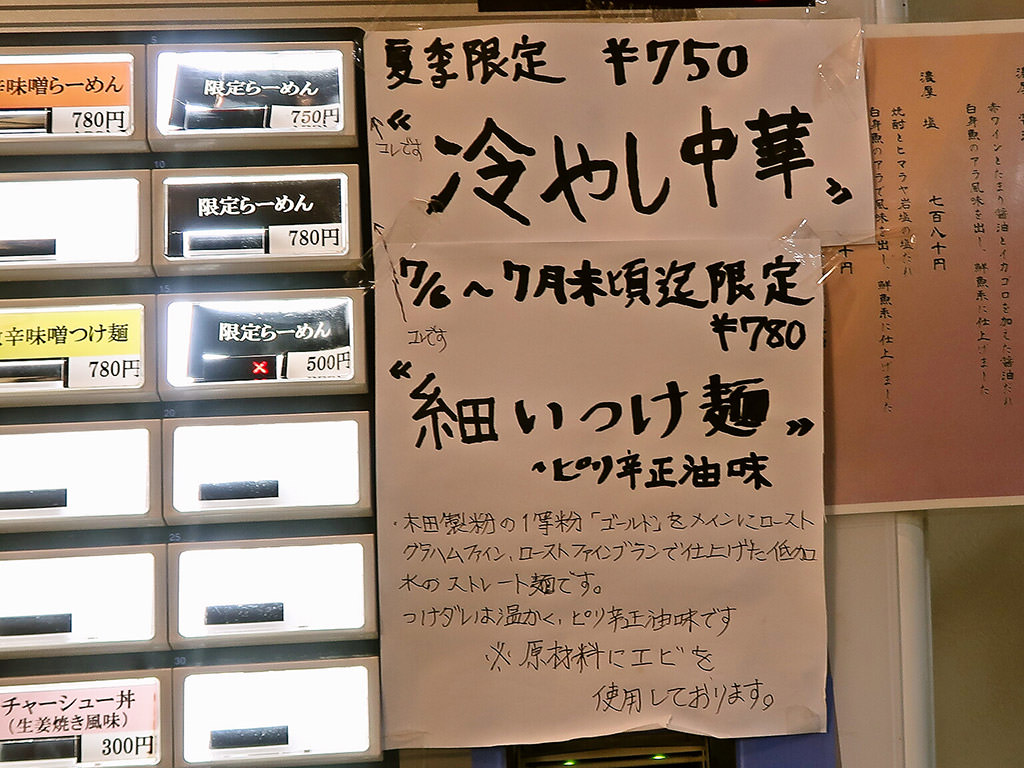 味噌らーめん
780円
5
限定らーめん
750円
10
限定らーめん
780円
辛味噌つけ麺
780円
15
限定らーめん
500円
20
25
チャーシュー丼
(生姜焼き風味)
300円
30
夏季限定 ¥750
コレです
《冷やし中華》
7/6~7月末頃迄限定
¥780
コレです
《細いつけ麺》
~ピリ辛正油味
・木田製粉の1等粉「ゴールド」をメインにロースト
グラハムファイン、ローストファインブランで仕上げた低加
水のストレート麺です。
つけダレは温かく、ピリ辛正油味です
※原材料にエビを
使用しております。
赤ワインとたまり醤油とイカゴロを加えた醤油だれ
白身魚のアラ風味を出し、鮮魚系に仕上げました
濃厚 塩 七百八十円
焼酎とヒマラヤ岩塩の塩だれ
白身魚のアラで風味を出し、鮮魚系に仕上げました
十円